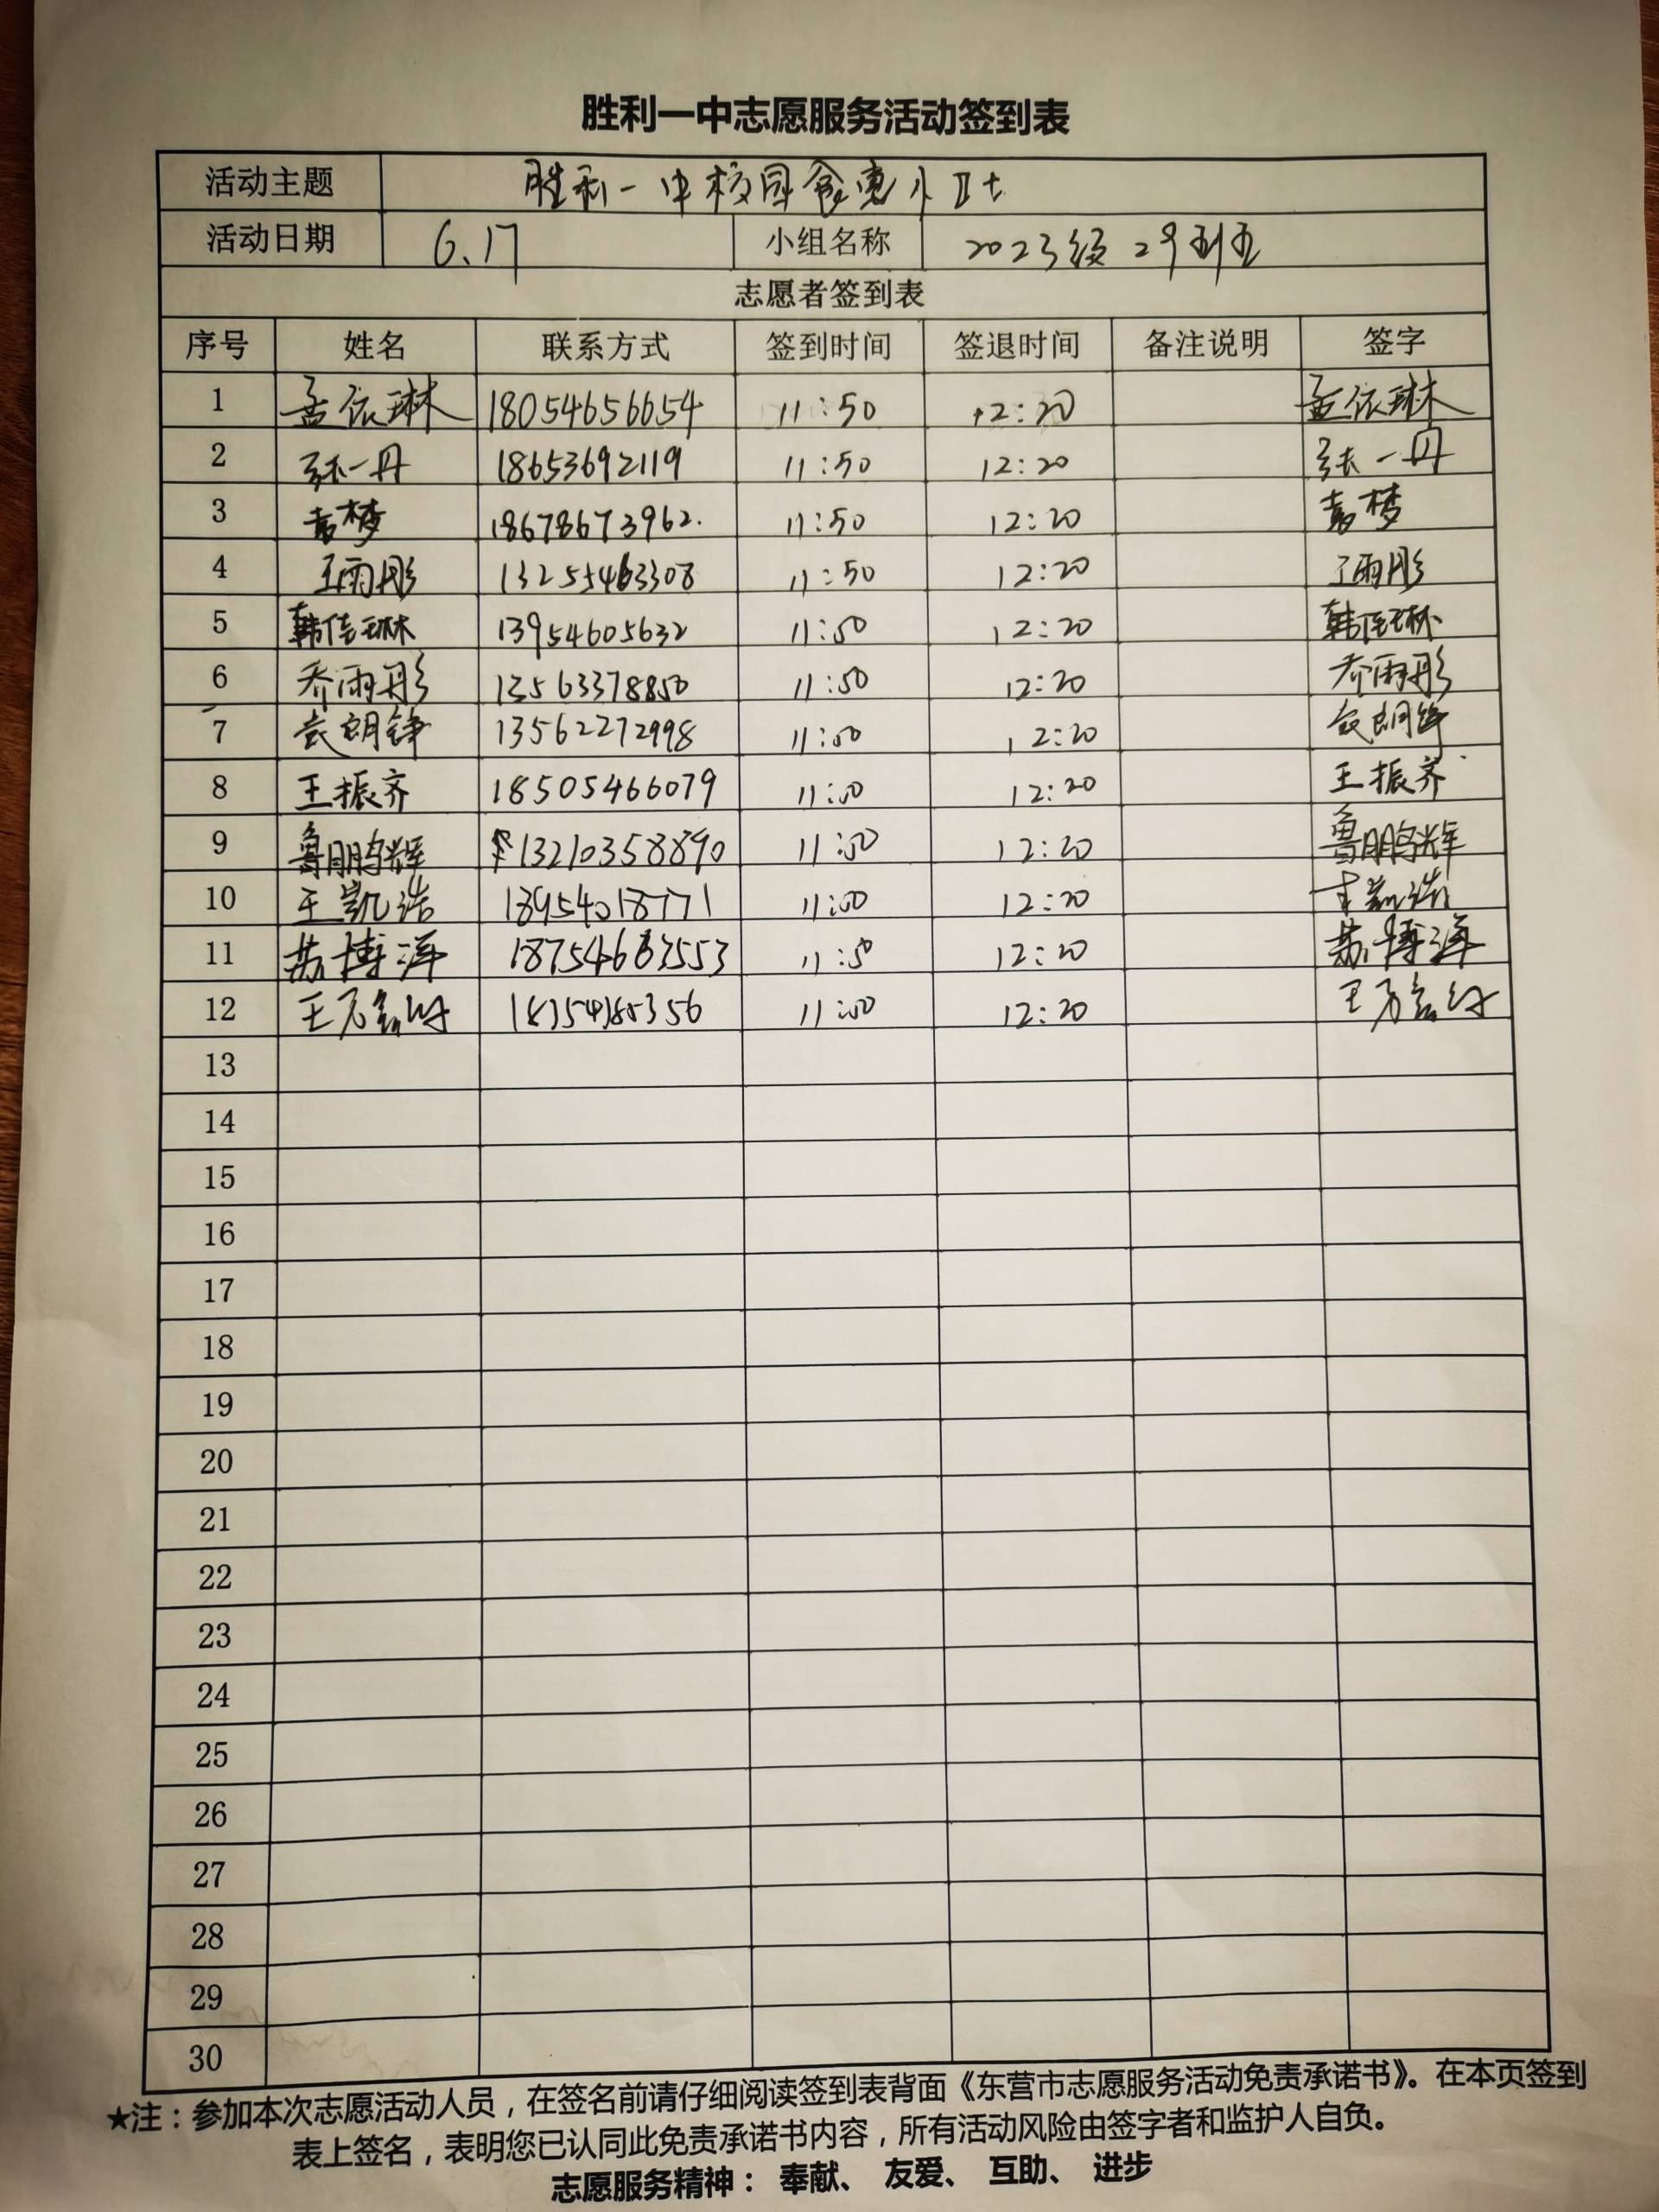 胜利一中志愿服务活动签到表
活动主题 胜利一中校园食
活动日期 6.17 小组名称 2023级 29
志愿者签到表
序号 姓名 联系方式 签到时间 签退时间 备注说明 签字
1 孟依琳 18054656654 11:50 12:20 孟依琳
2 张一丹 18653692119 11:50 12:20 张一丹
3 袁梦 18678673962. 11:50 12:20 袁梦
4 王雨彤 13255463308 11:50 12:20 王雨彤
5 韩佳琳 13954605632 11:50 12:20 韩佳琳
6 乔雨彤 13563378850 11:50 12:20 乔雨彤
7 袁朗铮 13562272998 11:50 12:20 袁朗铮
8 王振齐 18505466079 11:50 12:20 王振齐
9 鲁鹏辉 13210358890 11:50 12:20 鲁鹏辉
10 王凯浩 11:50 12:20 王凯浩
11 苏博洋 11:50 12:20 苏博洋
12 王 11:50 12:20 王
13
14
15
16
17
18
19
20
21
22
23
24
25
26
27
28
29
30
★注：参加本次志愿活动人员，在签名前请仔细阅读签到表背面《东营市志愿服务活动免责承诺书》。在本页签到
表上签名，表明您已认同此免责承诺书内容，所有活动风险由签字者和监护人自负。
志愿服务精神： 奉献、 友爱、 互助、 进步